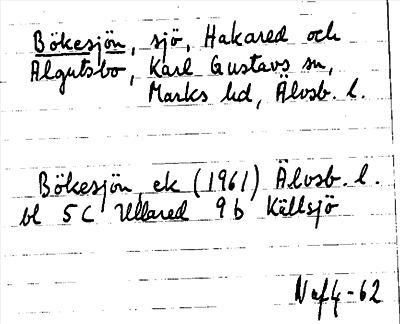 Bökesjön, sjö, Hakared och
Algutsbo, Karl Gustavs sn,
Marks hd, Älvsb. l.
Bökesjön ek (1961) Älvsb. l.
bl 5C Ullared 9b Källsjö
NefG-62